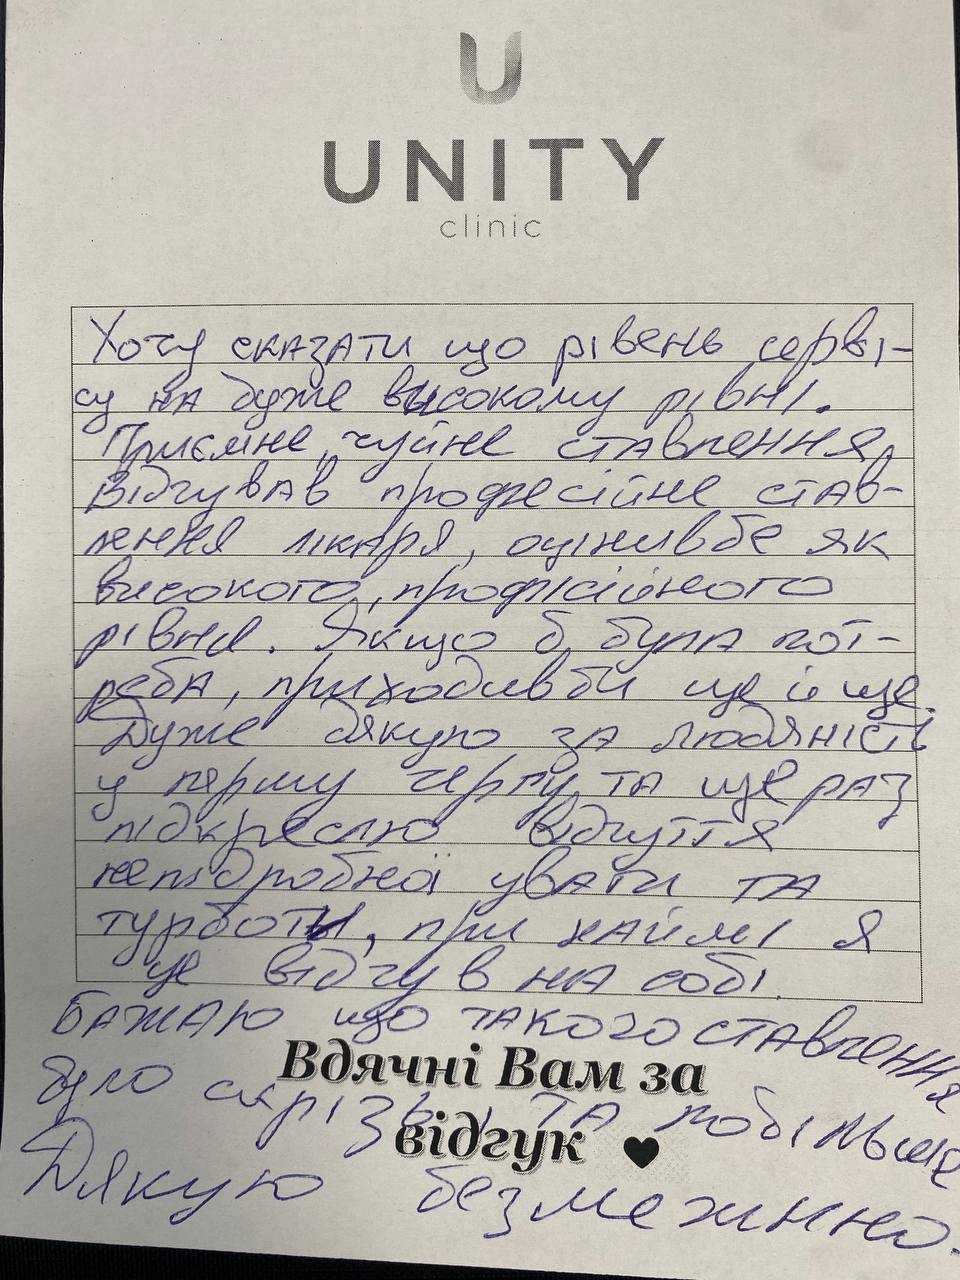 U
UNITY
clinic
Хочу сказати що рівень серві-
су на дуже високому рівні.
Приємне, чуйне ставлення,
Відчував професійне став-
лення лікаря, оцінив бе як
високого, професійного
рівня. Якщо б була пот-
реба, приходив би ще й ще.
Дуже дякую за людяність
у першу чергу та ще раз
підкреслю відчуття
непідробної уваги та
турботи, при наймі я
це відчув на собі.
Бажаю що такого ставлення
Вдячні Вам за
було скрізь та побільше
відгук ♥
Дякую безмежно.